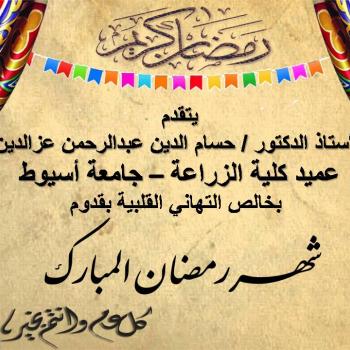 رمضان كريم
يتقدم
استاذ الدكتور / حسام الدين عبدالرحمن عزالدين
عميد كلية الزراعة – جامعة أسيوط
بخالص التهاني القلبية بقدوم
شهر رمضان المبارك
كل عام وانتم بخير